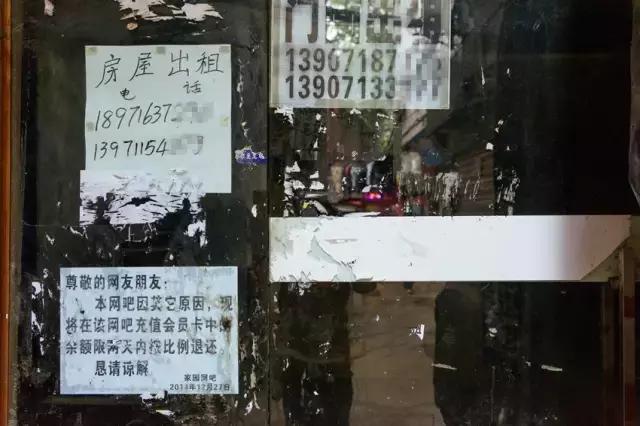 房屋出租
电话
18971637
13971154
13907187
13907133
尊敬的网友朋友:
本网吧因其它原因,现
将在该网吧充值会员卡中的
余额限两天内按比例退还,
恳请谅解
家园网吧
2011年12月27日